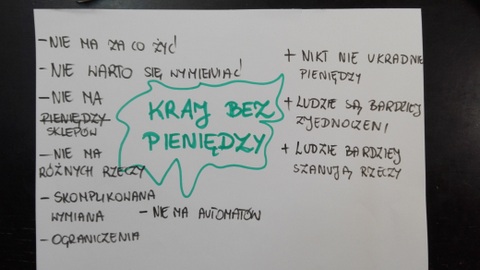 - NIE MA ZA CO ŻYĆ!
- NIE WARTO SIĘ WYMIENIAĆ!
- NIE MA
PIENIĘDZY
SKLEPÓW
- NIE MA
RÓŻNYCH RZECZY
- SKOMPLIKOWANA
WYMIANA
- NIE MA AUTOMATÓW
- OGRANICZENIA
KRAJ BEZ
PIENIĘDZY
+ NIKT NIE UKRADNIE
PIENIĘDZY
+ LUDZIE SĄ BARDZIEJ
ZJEDNOCZENI
+ LUDZIE BARDZIEJ
SZANUJĄ RZECZY